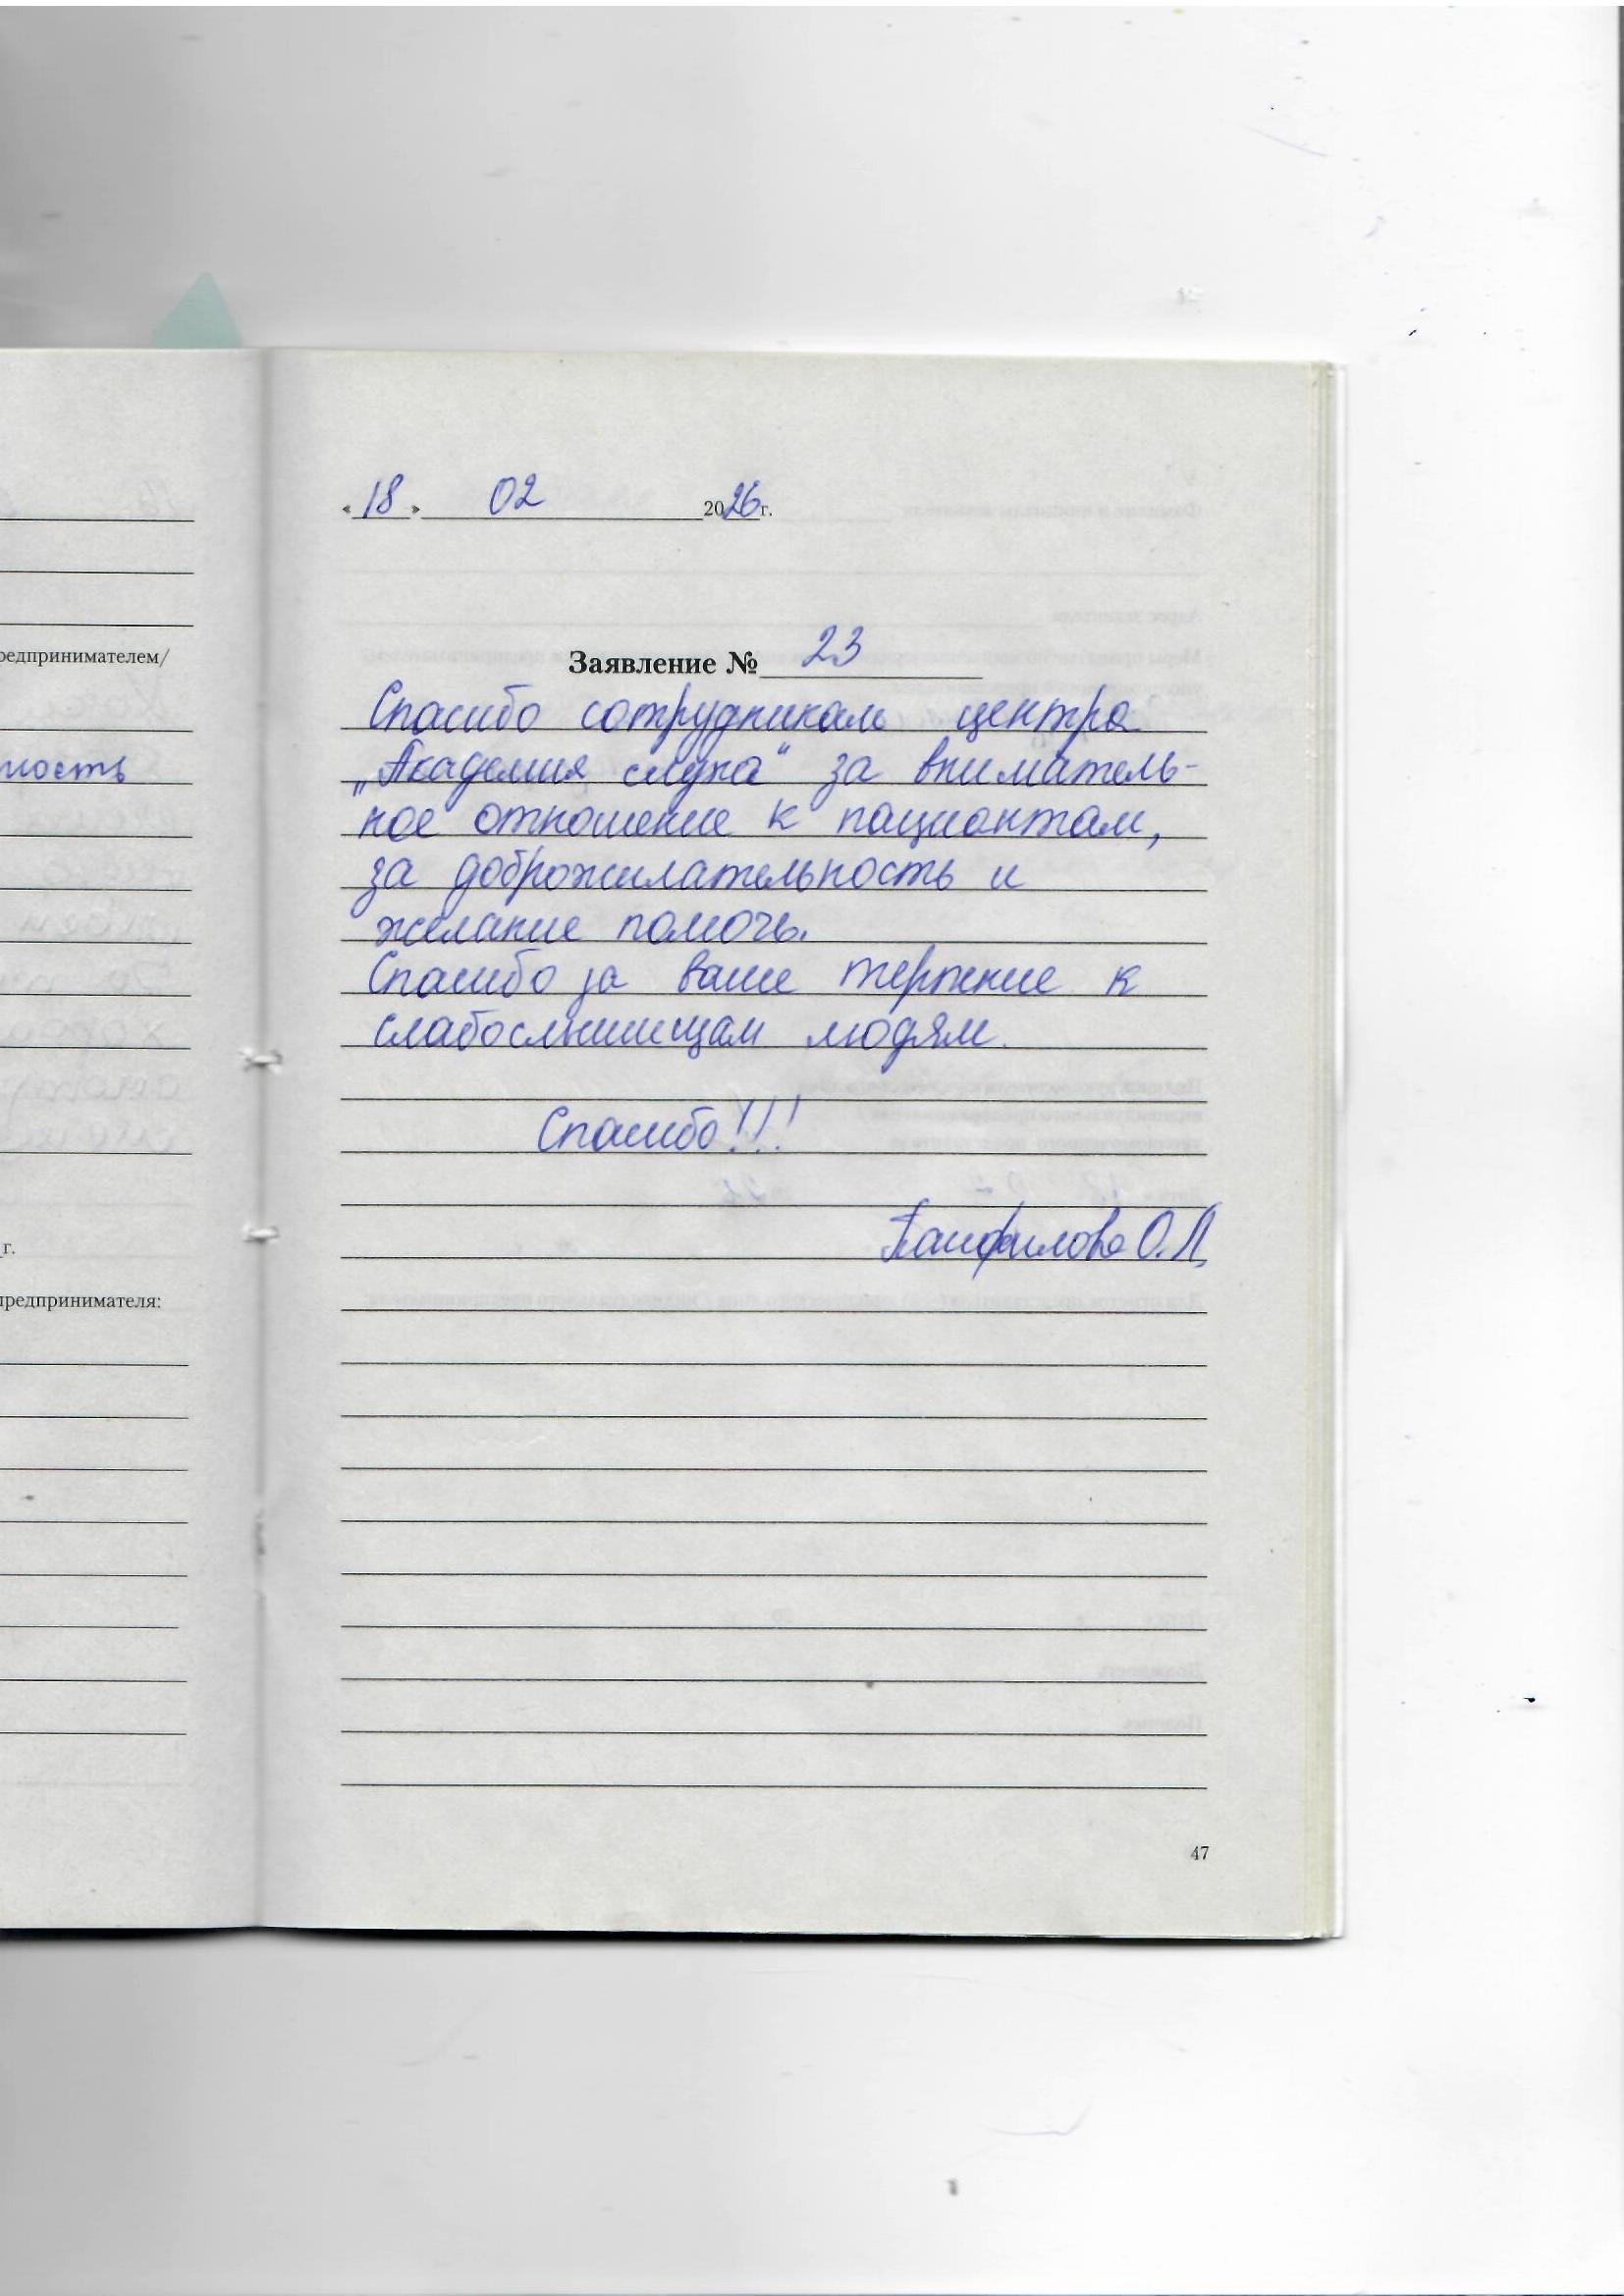 редпринимателем/
ность
г.
предпринимателя:
«18» 02 2026г.
Заявление № 23
Спасибо сотрудникам центра
„Академия слуха“ за вниматель-
ное отношение к пациентам,
за доброжилательность и
желание помочь.
Спасибо за ваше терпение к
слабослышищам людям.
Спасибо!!!
Панфилова О.Л.
47